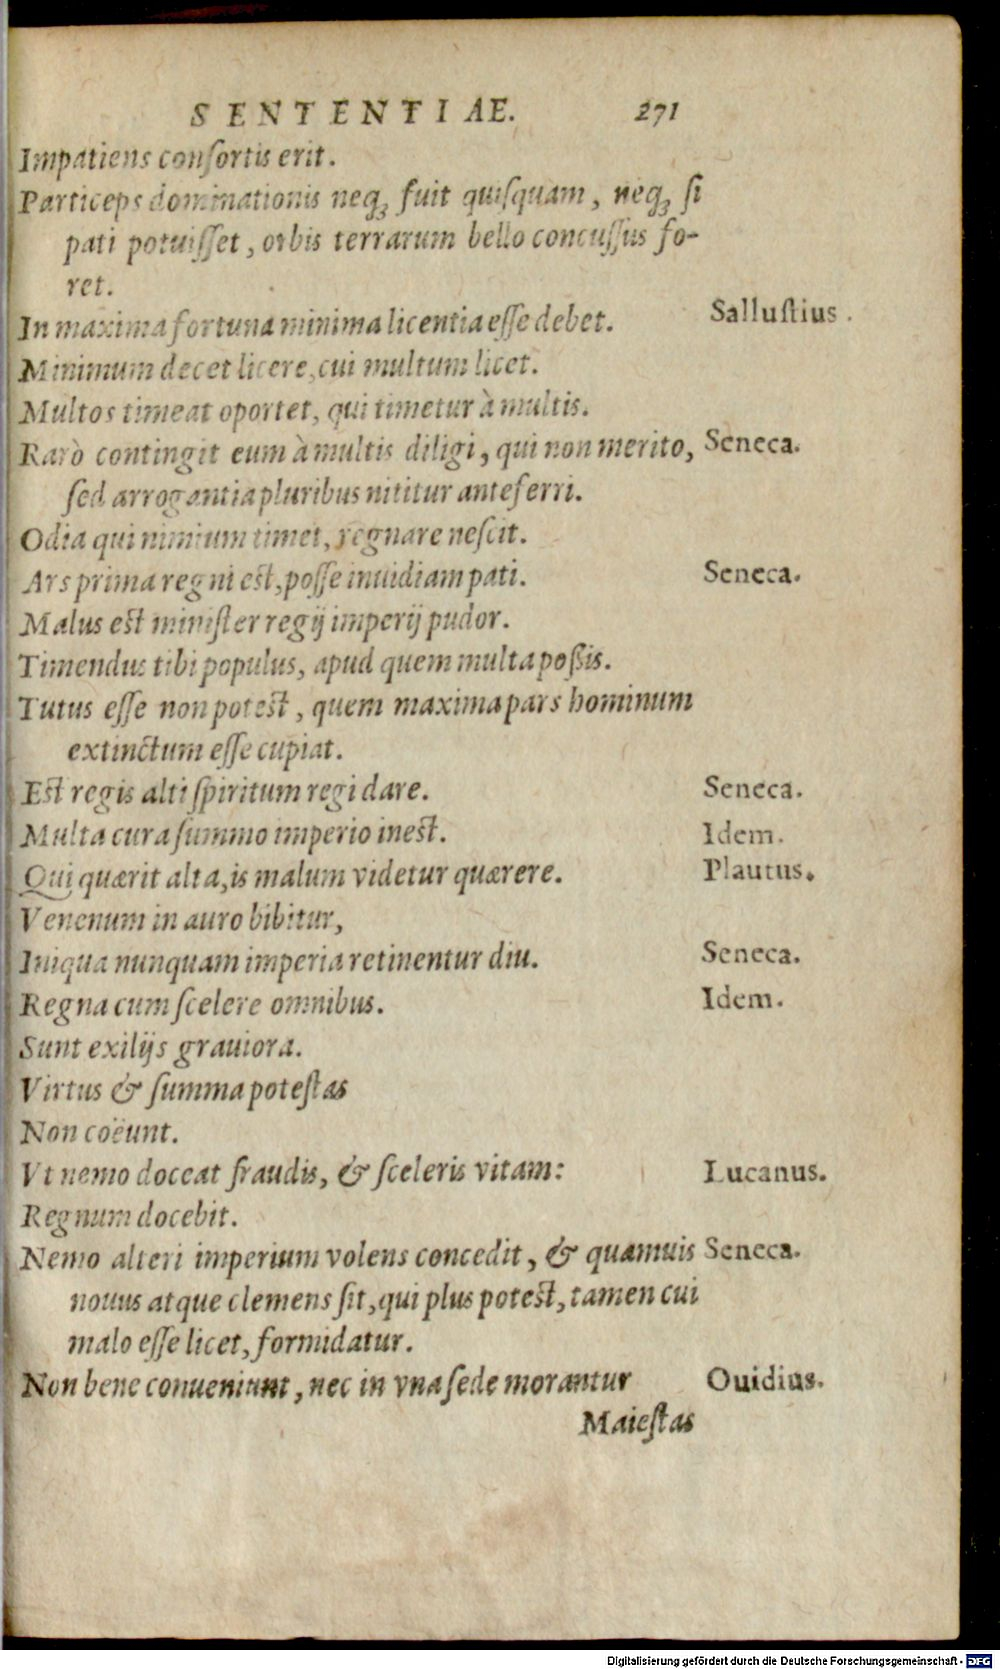 SENTENTIAE. 271
Impatiens consortis erit.
Particeps dominationis neq; fuit quisquam, neq; si
pati potuisset, orbis terrarum bello concussus fo-
ret.
In maxima fortuna minima licentia esse debet. Sallustius.
Minimum decet licere, cui multum licet.
Multos timeat oportet, qui timetur à multis.
Rarò contingit eum à multis diligi, qui non merito, Seneca.
sed arrogantia pluribus nititur anteferri.
Odia qui nimium timet, regnare nescit.
Ars prima regni est, posse inuidiam pati. Seneca.
Malus est minister regij imperij pudor.
Timendus tibi populus, apud quem multa poßis.
Tutus esse non potest, quem maxima pars hominum
extinctum esse cupiat.
Est regis alti spiritum regi dare. Seneca.
Multa cura summo imperio inest. Idem.
Qui quærit alta, is malum videtur quærere. Plautus.
Venenum in auro bibitur,
Iniqua nunquam imperia retinentur diu. Seneca.
Regna cum scelere omnibus. Idem.
Sunt exilijs grauiora.
Virtus & summa potestas
Non coëunt.
Vt nemo doceat fraudis, & sceleris vitam: Lucanus.
Regnum docebit.
Nemo alteri imperium volens concedit, & quamuis Seneca.
nouus atque clemens sit, qui plus potest, tamen cui
malo esse licet, formidatur.
Non bene conueniunt, nec in vna sede morantur Ouidius.
Maiestas
Digitalisierung gefördert durch die Deutsche Forschungsgemeinschaft - DFG